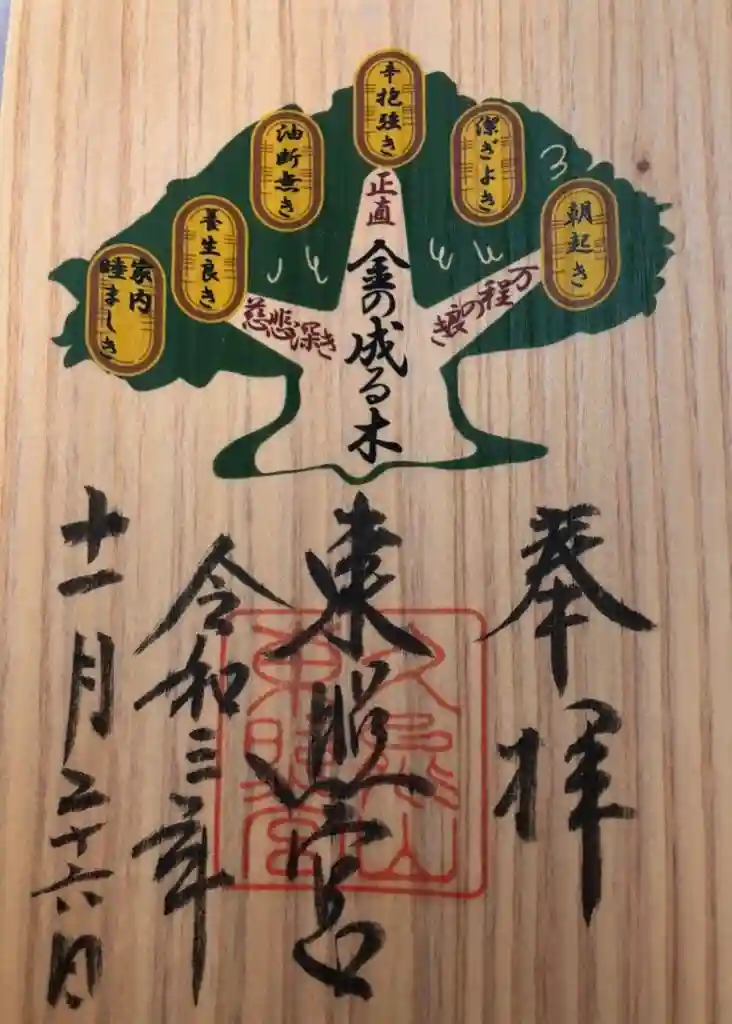 朝起き
潔ぎよき
辛抱強き
油断無き
養生良き
家内
睦ましき
万程の良き
正直
慈悲深き
金の成る木
奉拝
東照宮
令和三年
十一月二十六日
久能山
東照宮